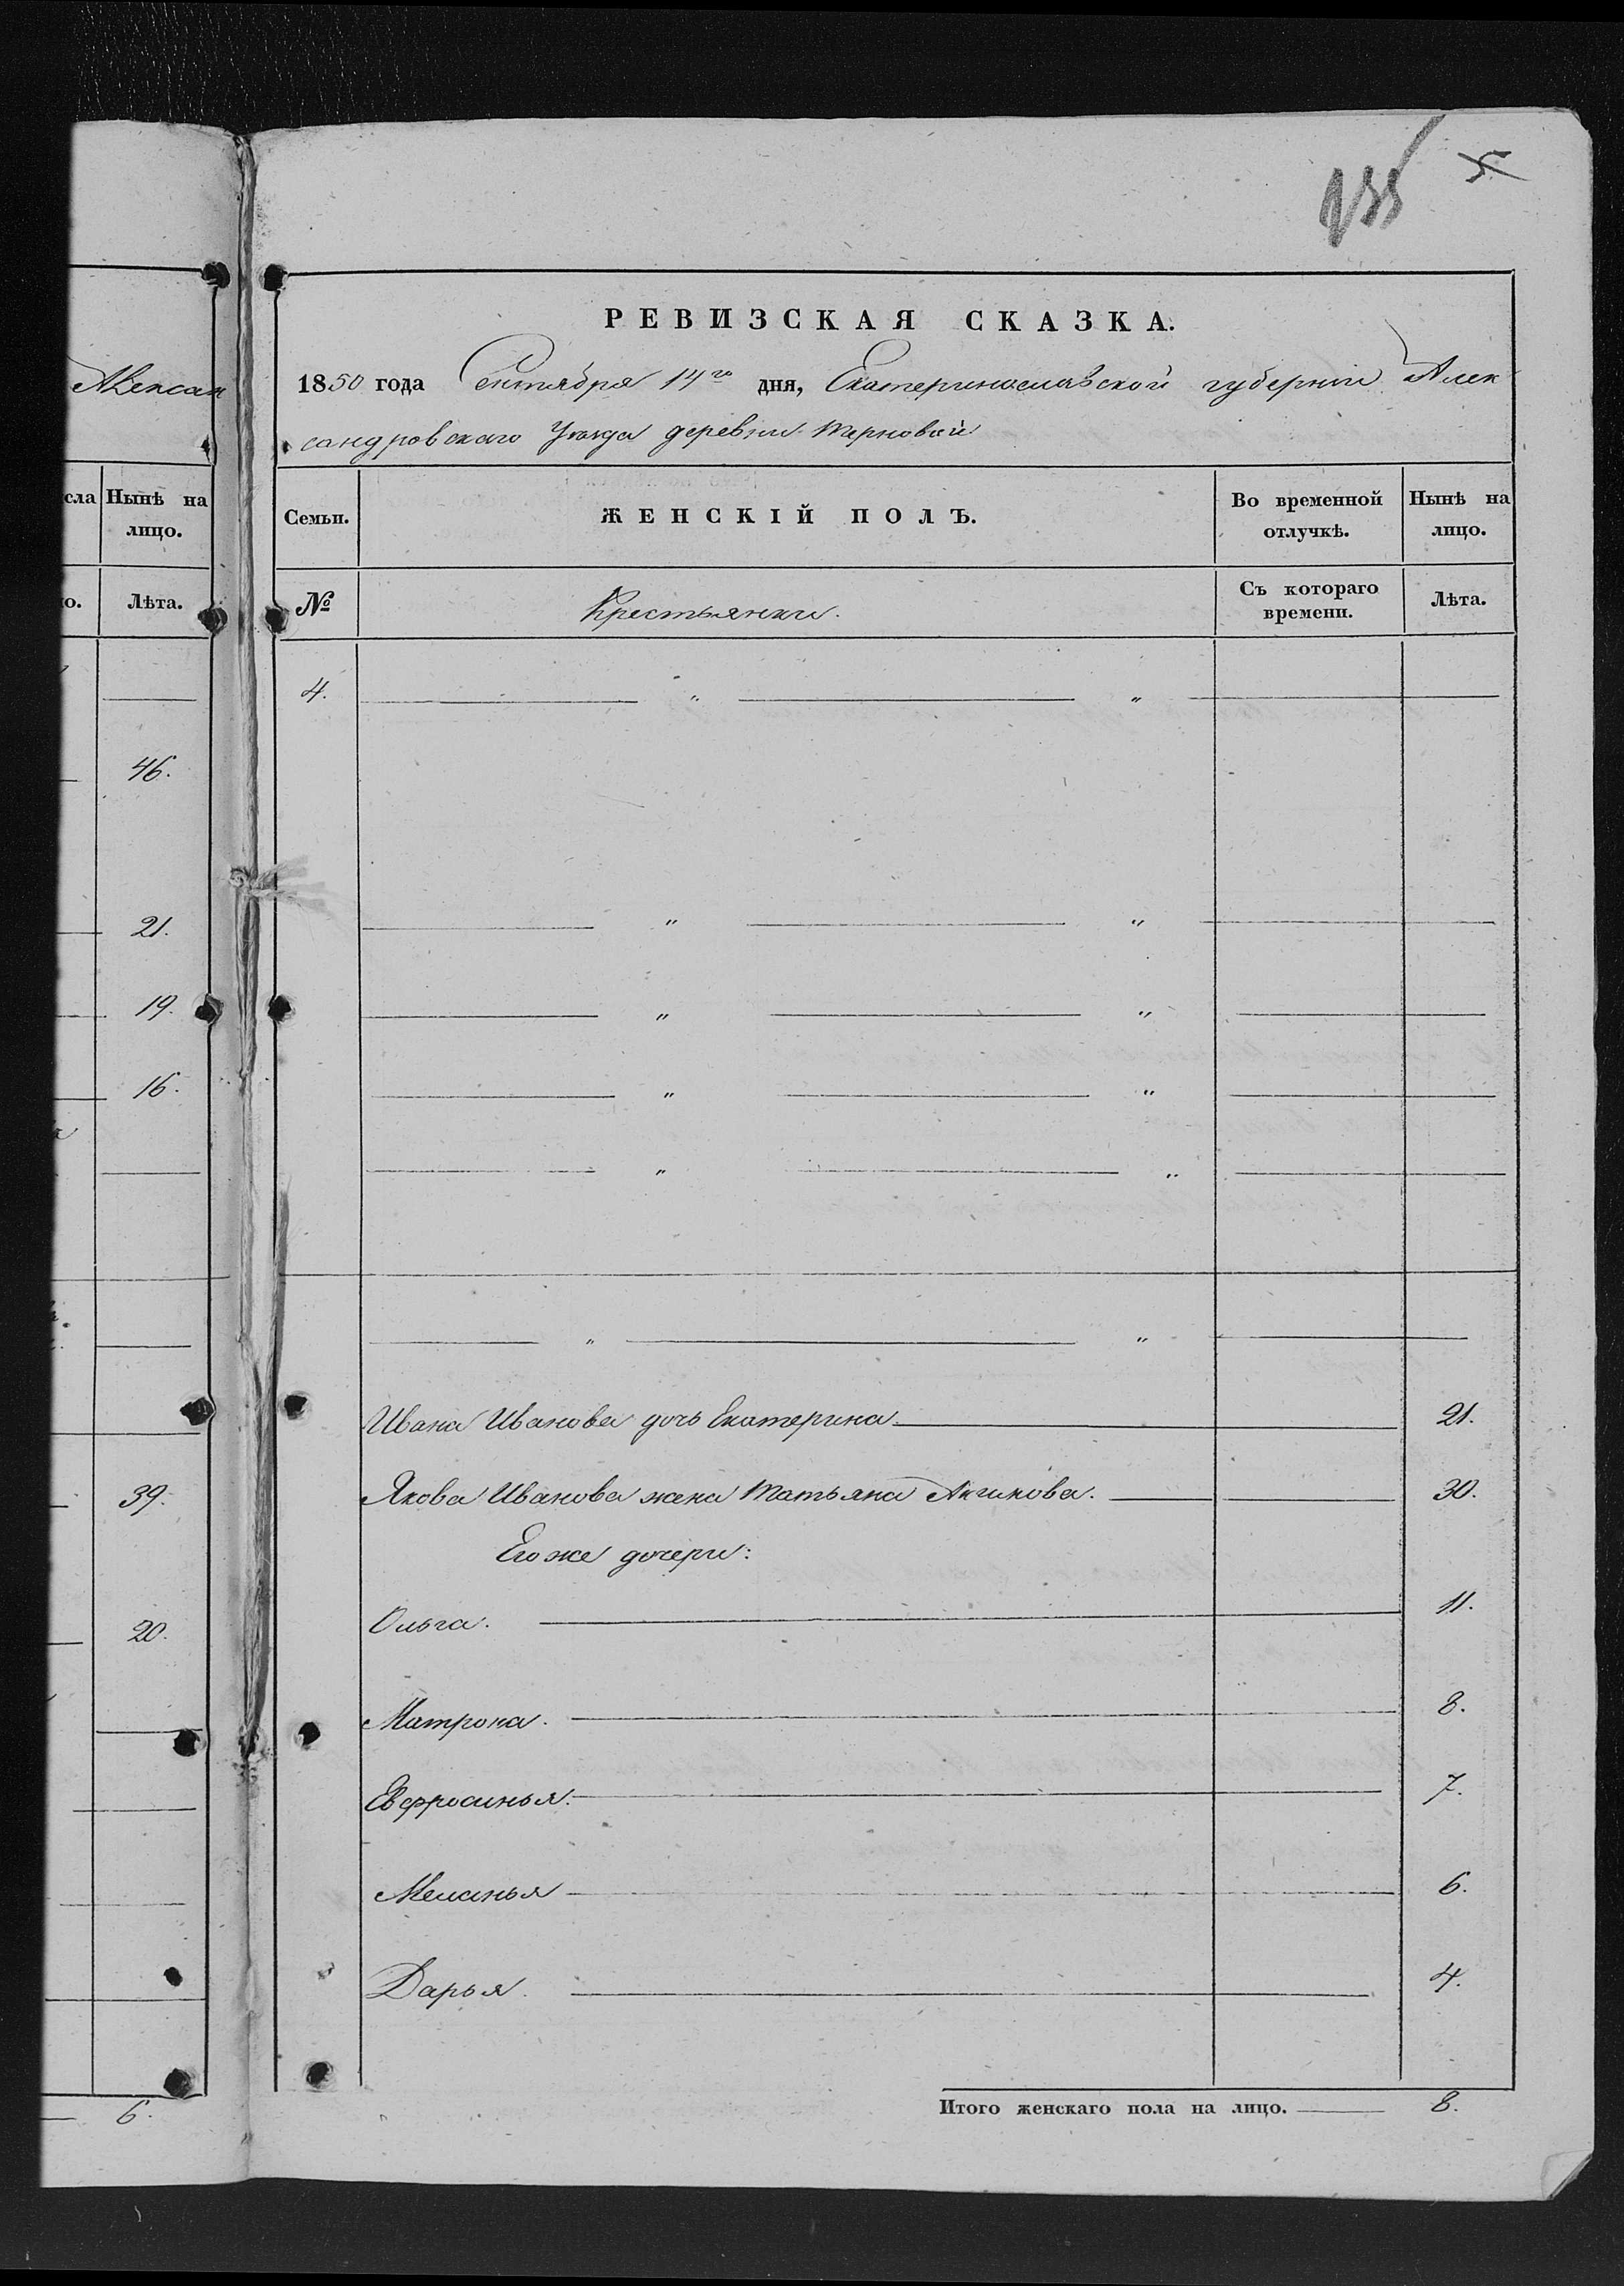 135 5
Алексан
РЕВИЗСКАЯ СКАЗКА.
1850 года Сентября 14го дня, Екатеринославской губерніи Алек
сандровскаго Уѣзда деревни Терновой
сла Нынѣ на лицо.
Семьи. ЖЕНСКІЙ ПОЛЪ. Во временной отлучкѣ. Нынѣ на лицо.
ю. Лѣта.
№ Крестьянки. Съ котораго времени. Лѣта.
4. " "
46.
21. " "
19. " "
16. " "
" "
" "
Ивана Иванова дочь Екатерина 21.
39. Якова Иванова жена Татьяна 30.
Его же дочери:
20. Ольга. 11.
Матрона. 8.
Евфросинья. 7.
Меланья 6.
Дарья. 4.
6. Итого женскаго пола на лицо. 8.